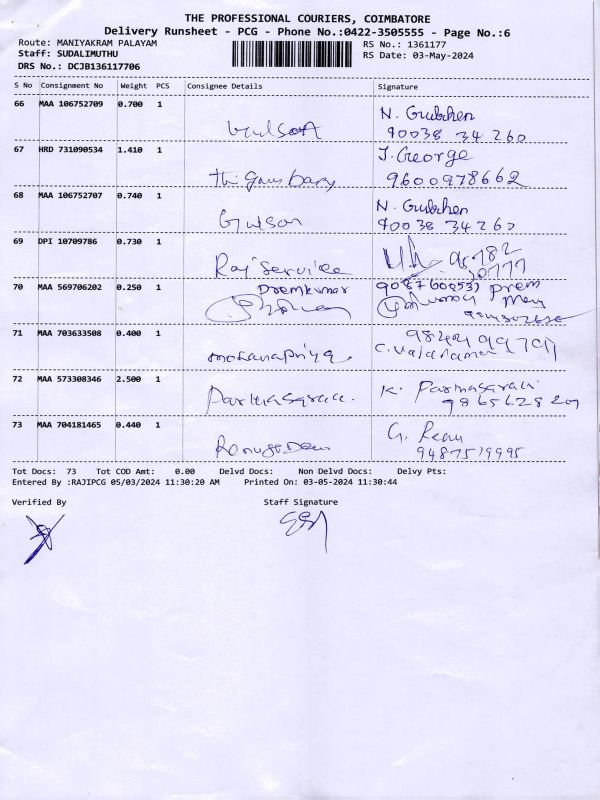 THE PROFESSIONAL COURIERS, COIMBATORE
Delivery Runsheet - PCG - Phone No.:0422-3505555 - Page No.:6
Route: MANIYAKRAM PALAYAM RS No.: 1361177
Staff: SUDALIMUTHU RS Date: 03-May-2024
DRS No.: DCJB136117706
S No Consignment No Weight PCS Consignee Details Signature
66 MAA 106752709 0.700 1 N. Gubchen
90038 34260
67 HRD 731090534 1.410 1 J. George
9600978662
68 MAA 106752707 0.740 1 N. Gubchen
Gulson 90038 34260
69 DPI 10709786 0.730 1
Raj Service
70 MAA 569706202 0.250 1 Premkumar Prem
71 MAA 703633508 0.400 1
mohanapriya
72 MAA 573308346 2.500 1 K.
73 MAA 704181465 0.440 1 G.
9487519995
Tot Docs: 73 Tot COD Amt: 0.00 Delvd Docs: Non Delvd Docs: Delvy Pts:
Entered By :RAJIPCG 05/03/2024 11:30:20 AM Printed On: 03-05-2024 11:30:44
Verified By Staff Signature